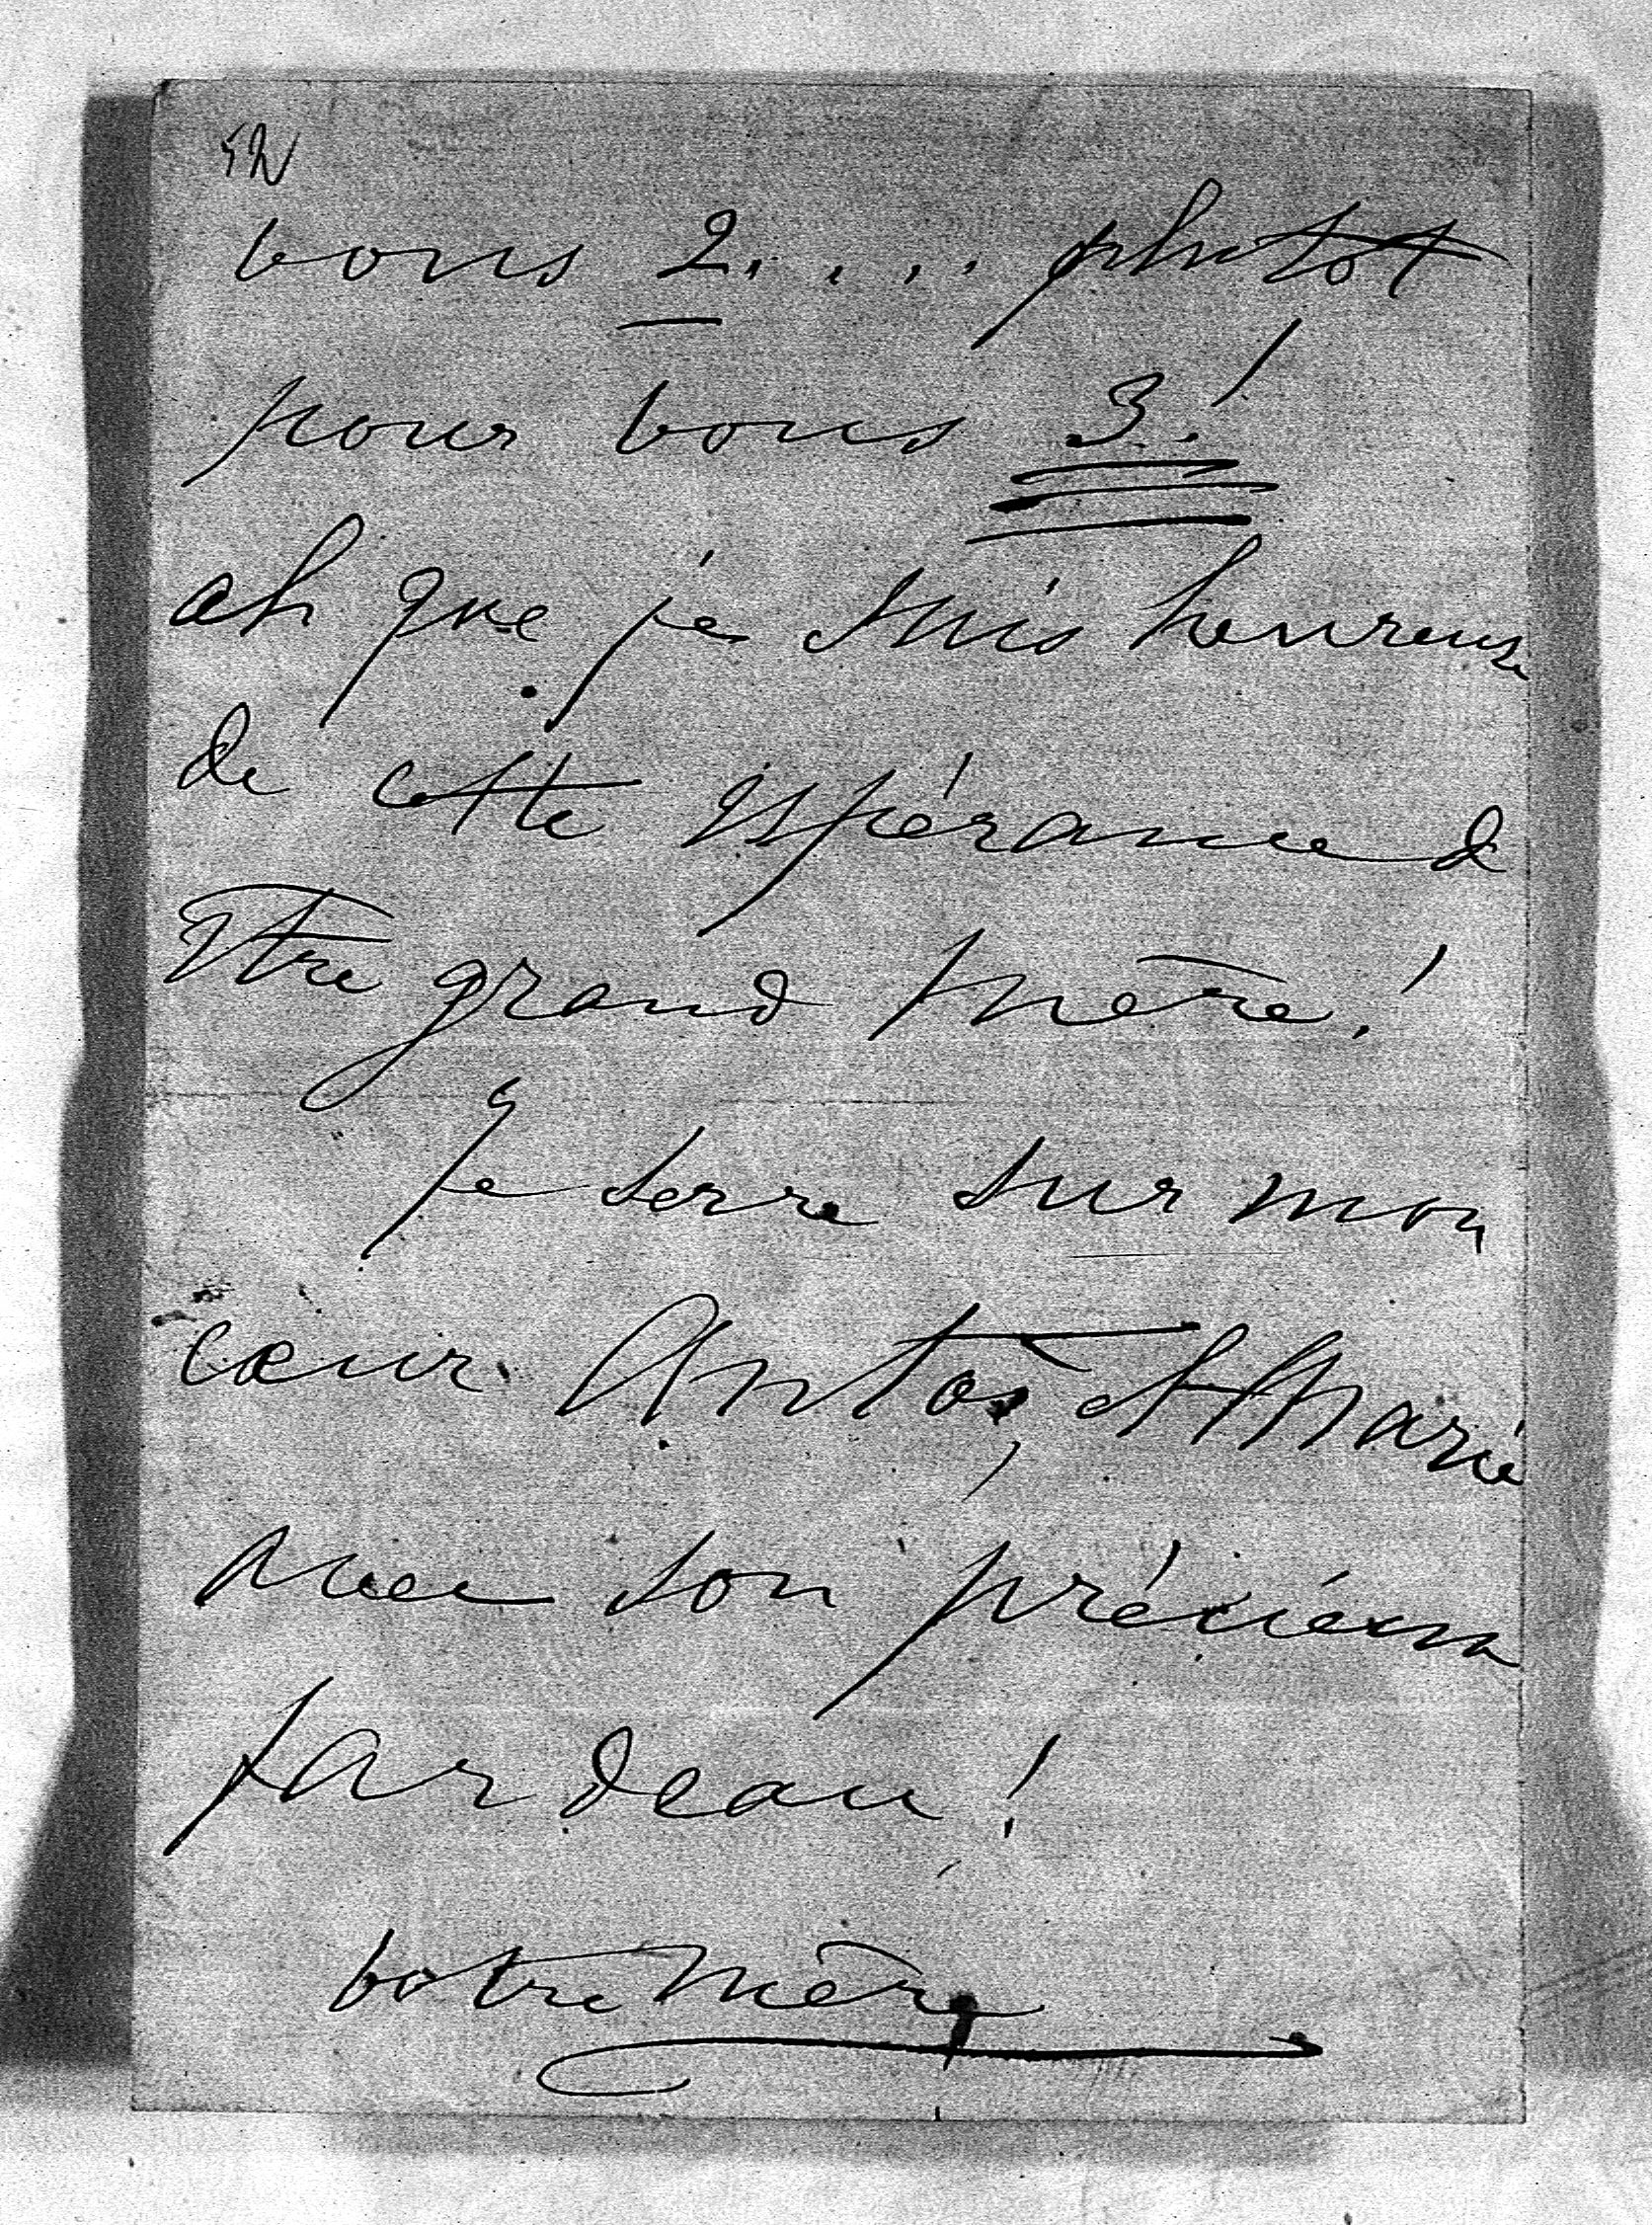 vous 2.... plutot
pour vous 3!
ah que je suis heureuse
de cette espérance d
être grand mère!
Je serre sur mon
cœur Antoś, et Marie
avec son précieux
fardeau!
votre mère